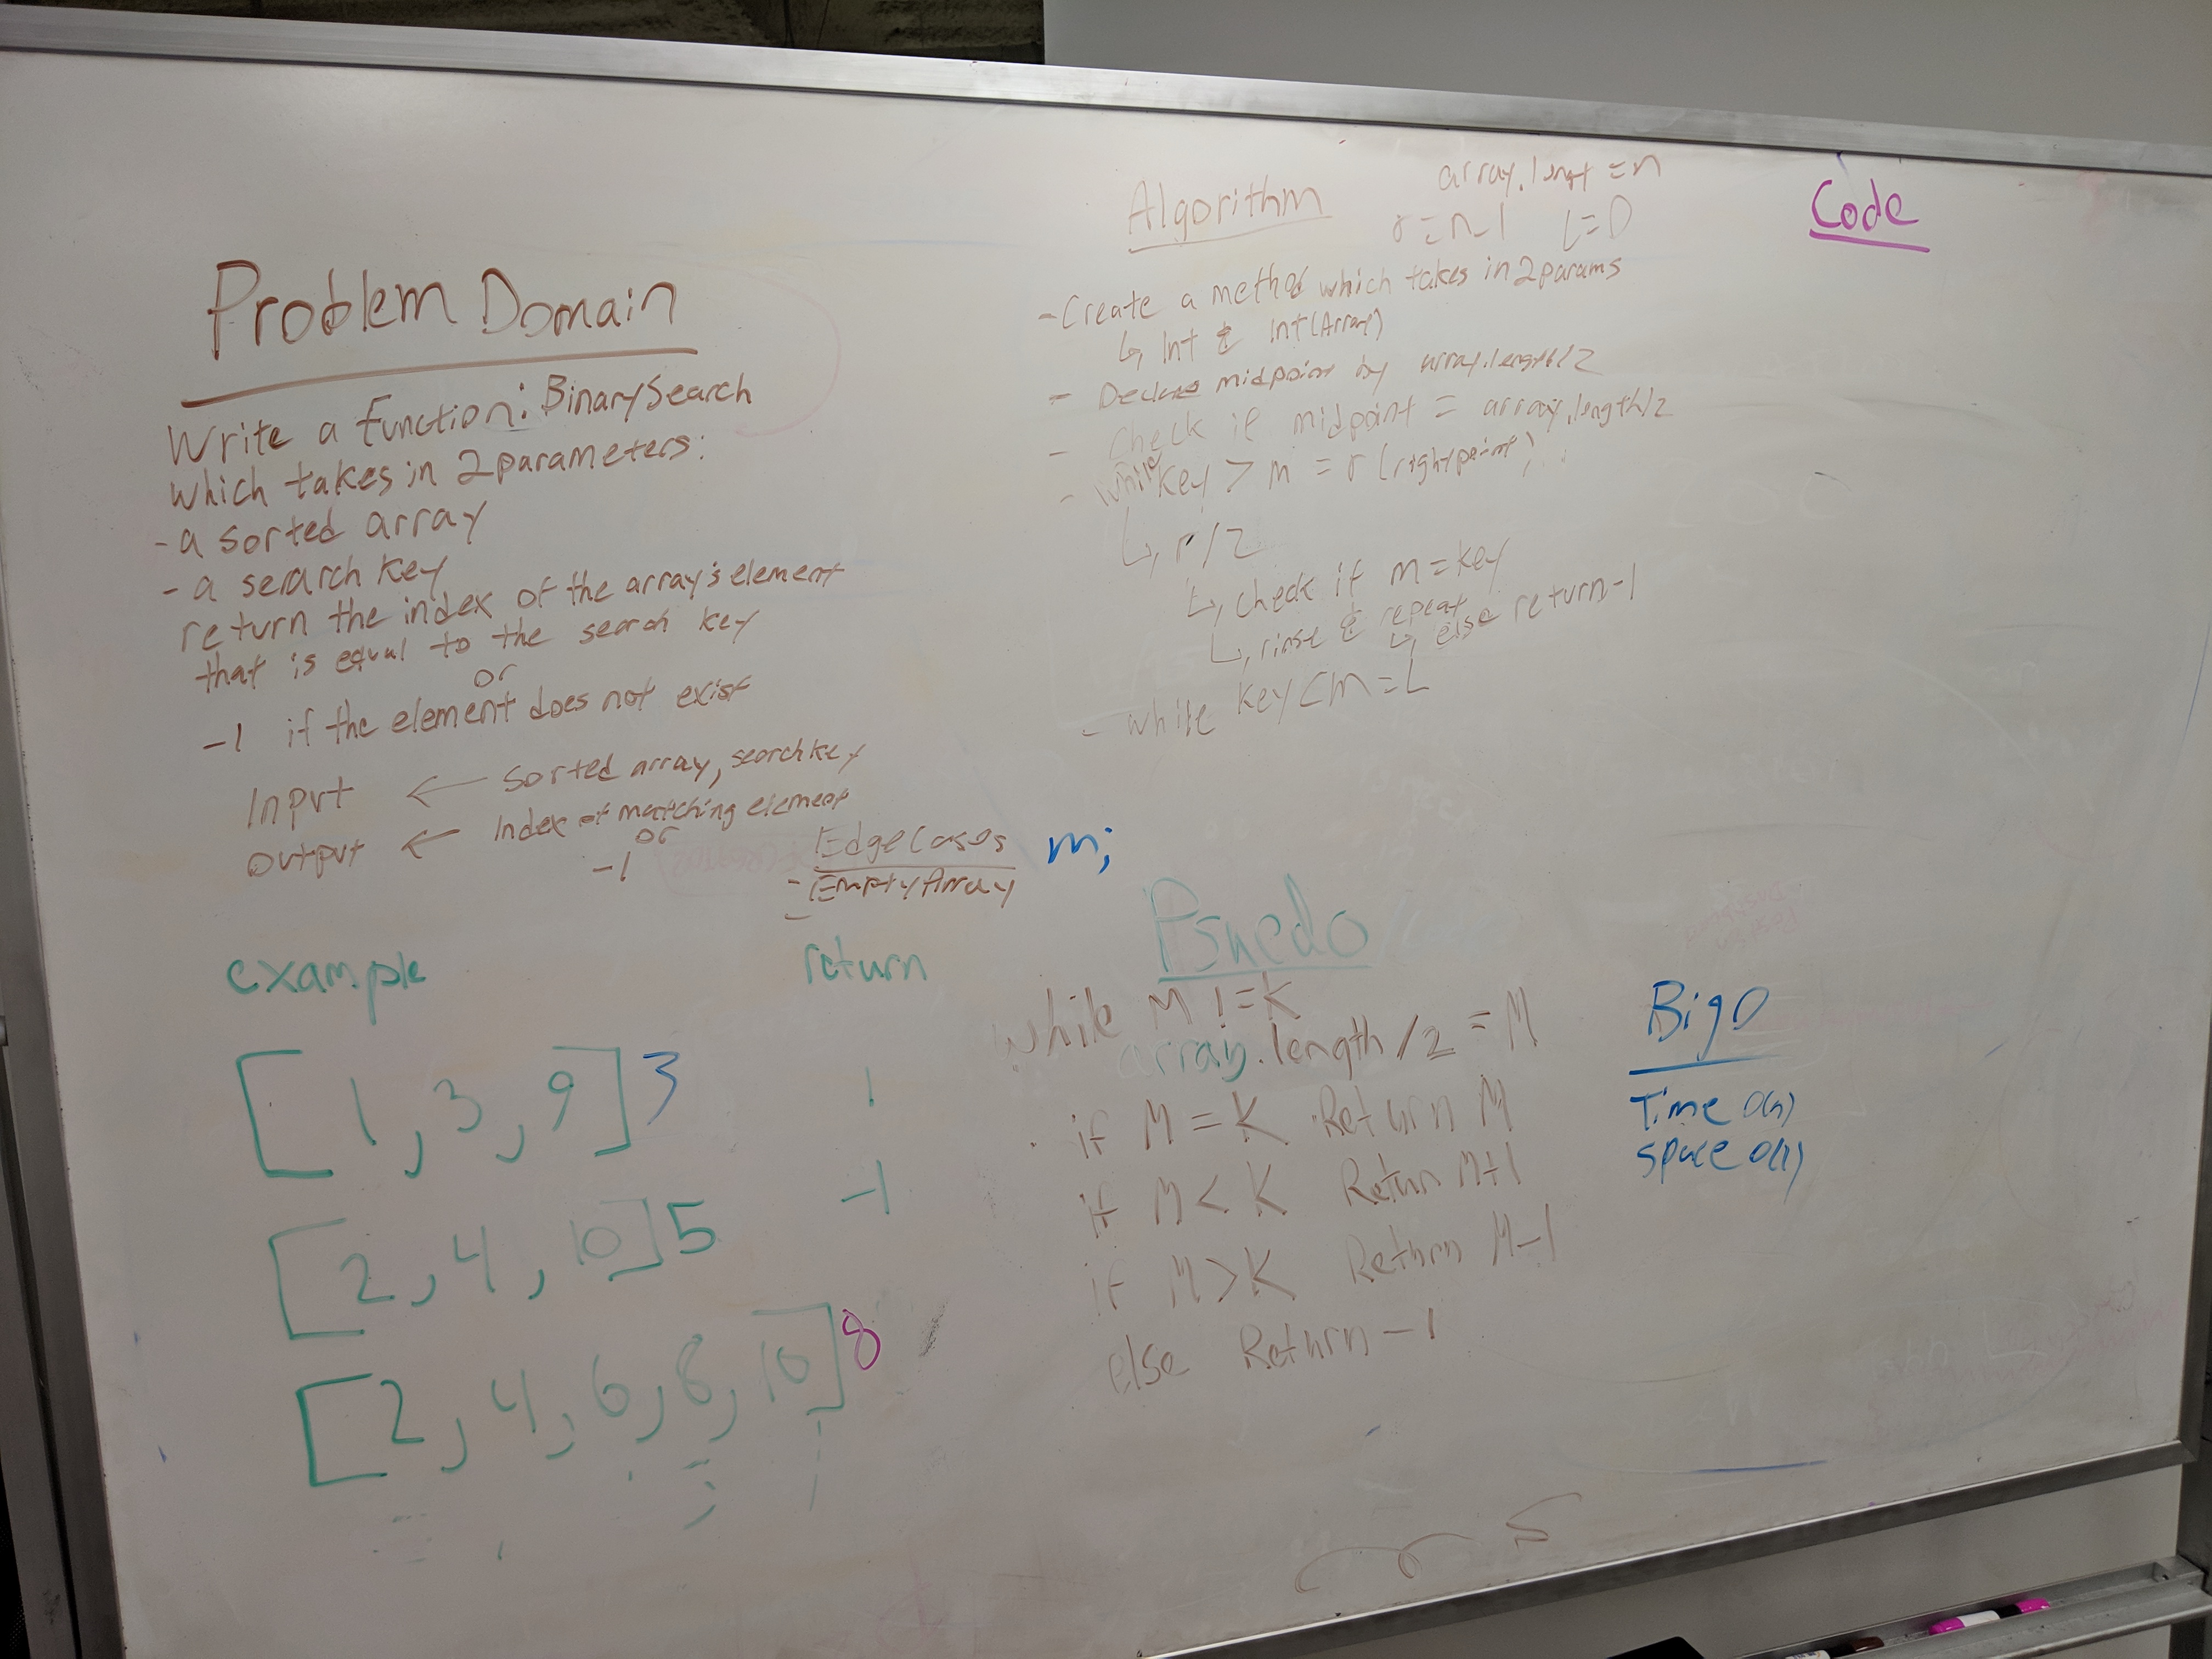 Problem Domain
Write a function: BinarySearch
which takes in 2 parameters:
- a sorted array
- a search key
return the index of the array's element
that is equal to the search key
or
-1 if the element does not exist
Input ← Sorted array, searchkey
Output ← Index of matching element
or
-1
Edge Cases
- Empty Array
-
example return
[1, 3, 9] 3 1
[2, 4, 10] 5 -1
[2, 4, 6, 8, 10] 8
Algorithm
array.lengt = n
r = n-1 L=0
- Create a method which takes in 2 params
↳ Int & Int(Array)
- Declare midpoint by array.length/2
- Check if midpoint = array.length/2
- while key > m = r (rightpoint)
↳ r/2
↳ check if m = key
↳ rinse & repeat
↳ else return -1
- while key < m = L
m;
Psuedo
while M != K
array.length/2 = M
if M = K Return M
if M < K Return M+1
if M > K Return M-1
else Return -1
Code
Big O
Time O(n)
space O(1)